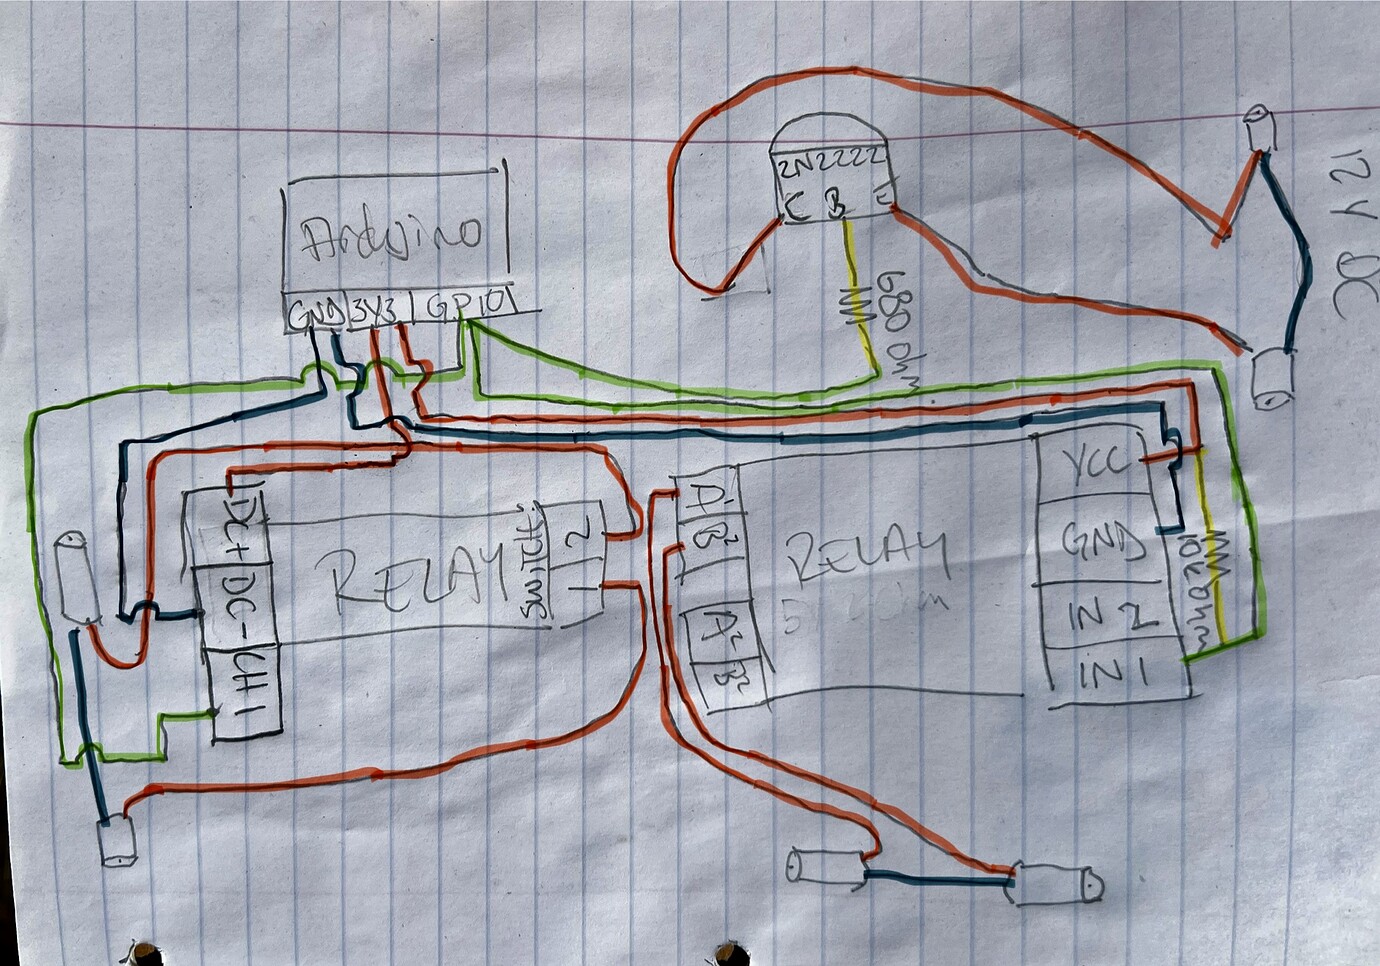 12V DC
2N2222
C B E
Arduino
GND 3V3 GPIO
680 ohm
DC+
DC-
CH1
RELAY
SWITCH
2
1
A1
RELAY
A2
B2
VCC
GND
IN 2
IN 1
10k ohm